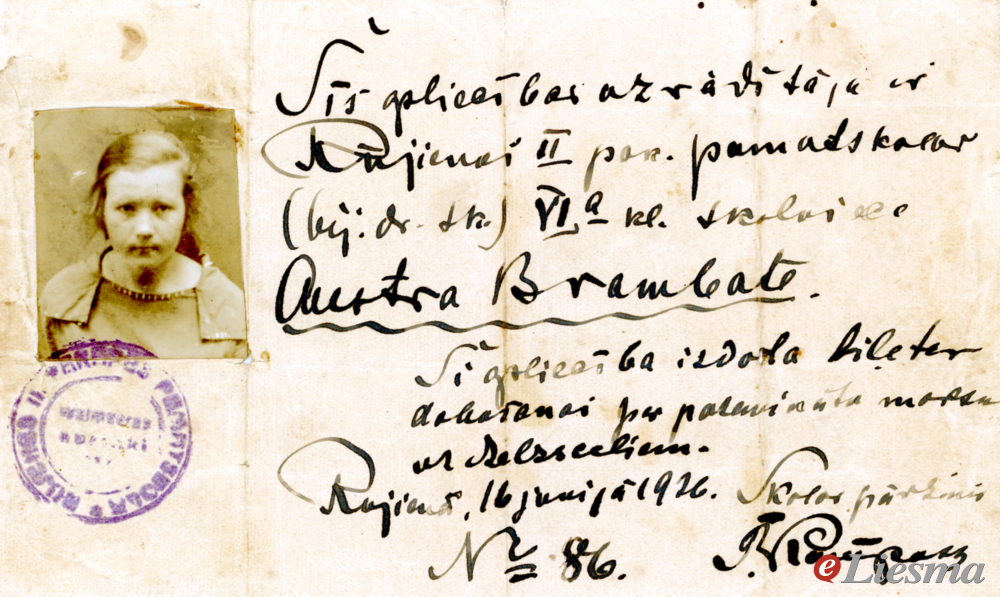 Šīs apliecības uzrādītāja ir
Rūjienas II pak. pamatskolas
(bij. dr. sk.) VIa kl. skolniece
Austra Brambate.
Šī apliecība izdota biļetes
dabūšanai par pazemināta maksu
uz dzelzsceļiem.
Rujienā, 16 junijā 1926. Skolas pārzinis
№ 86.
eLiesma